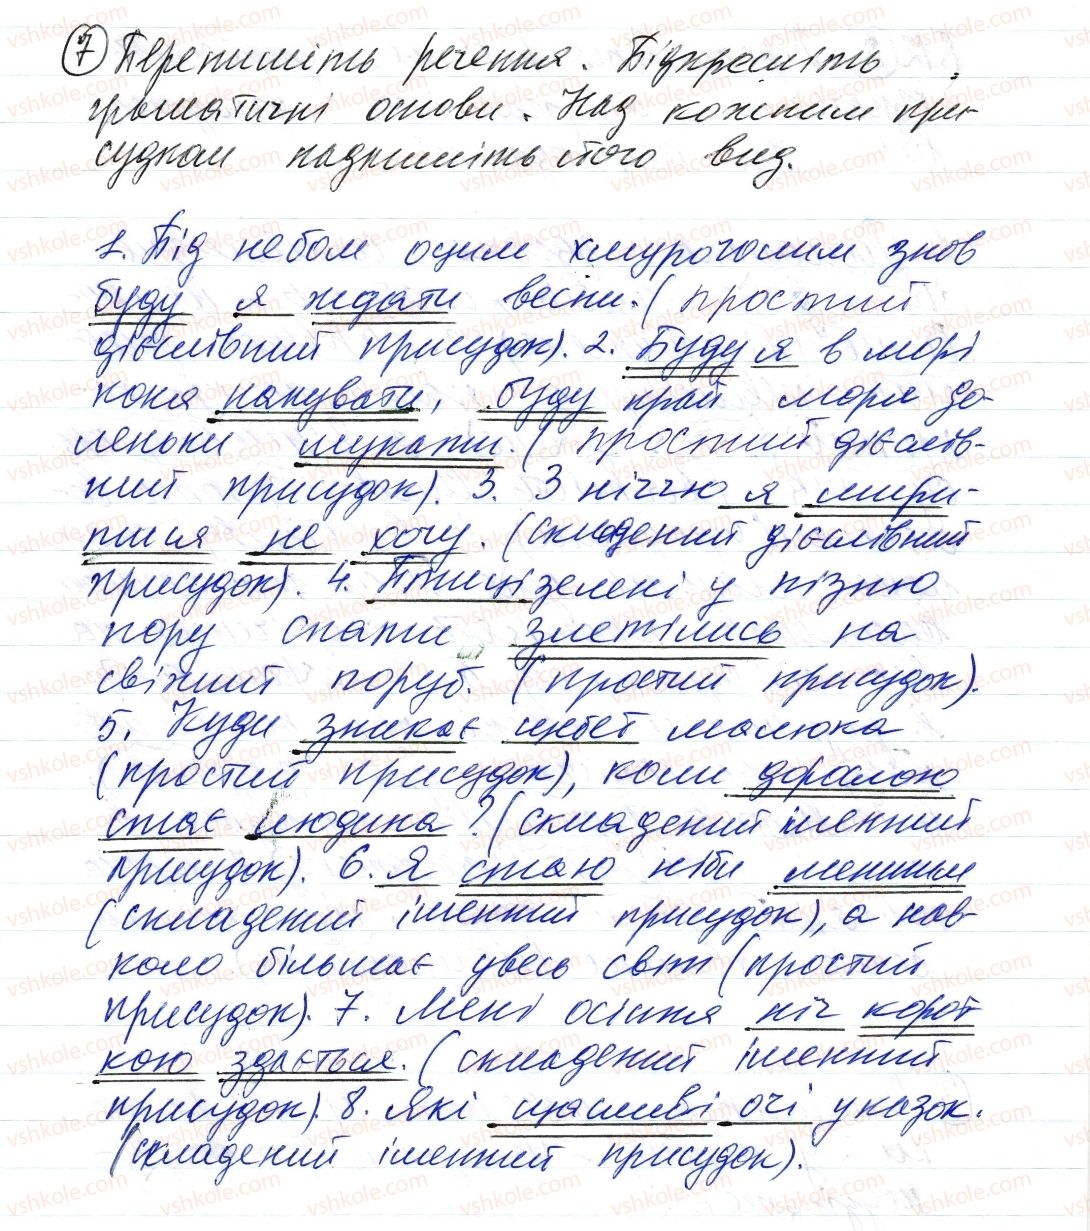 7 Перепишіть речення. Підкресліть
граматичні основи. Над кожним при-
судком надпишіть його вид.
1. Під небом оцим хмурочолим знов
буду я ждати весни. (простий
дієслівний присудок). 2. Буду я в морі
коня напувати, буду край моря до-
леньки шукати. (простий дієслів-
ний присудок). 3. З ніччю я мири-
тися не хочу. (складений дієслівний
присудок). 4. Птиці зелені у пізню
пору спати злетілись на
свіжий поруб. (простий присудок).
5. Куди зникає цвіт малюка
(простий присудок), коли дорослою
стає людина? (складений іменний
присудок). 6. Я стаю ніби меншим
(складений іменний присудок), а нав-
коло більшає увесь світ (простий
присудок). 7. Мені осіння ніч корот-
кою здається. (складений іменний
присудок). 8. Які щасливі очі у казок.
(складений іменний присудок).